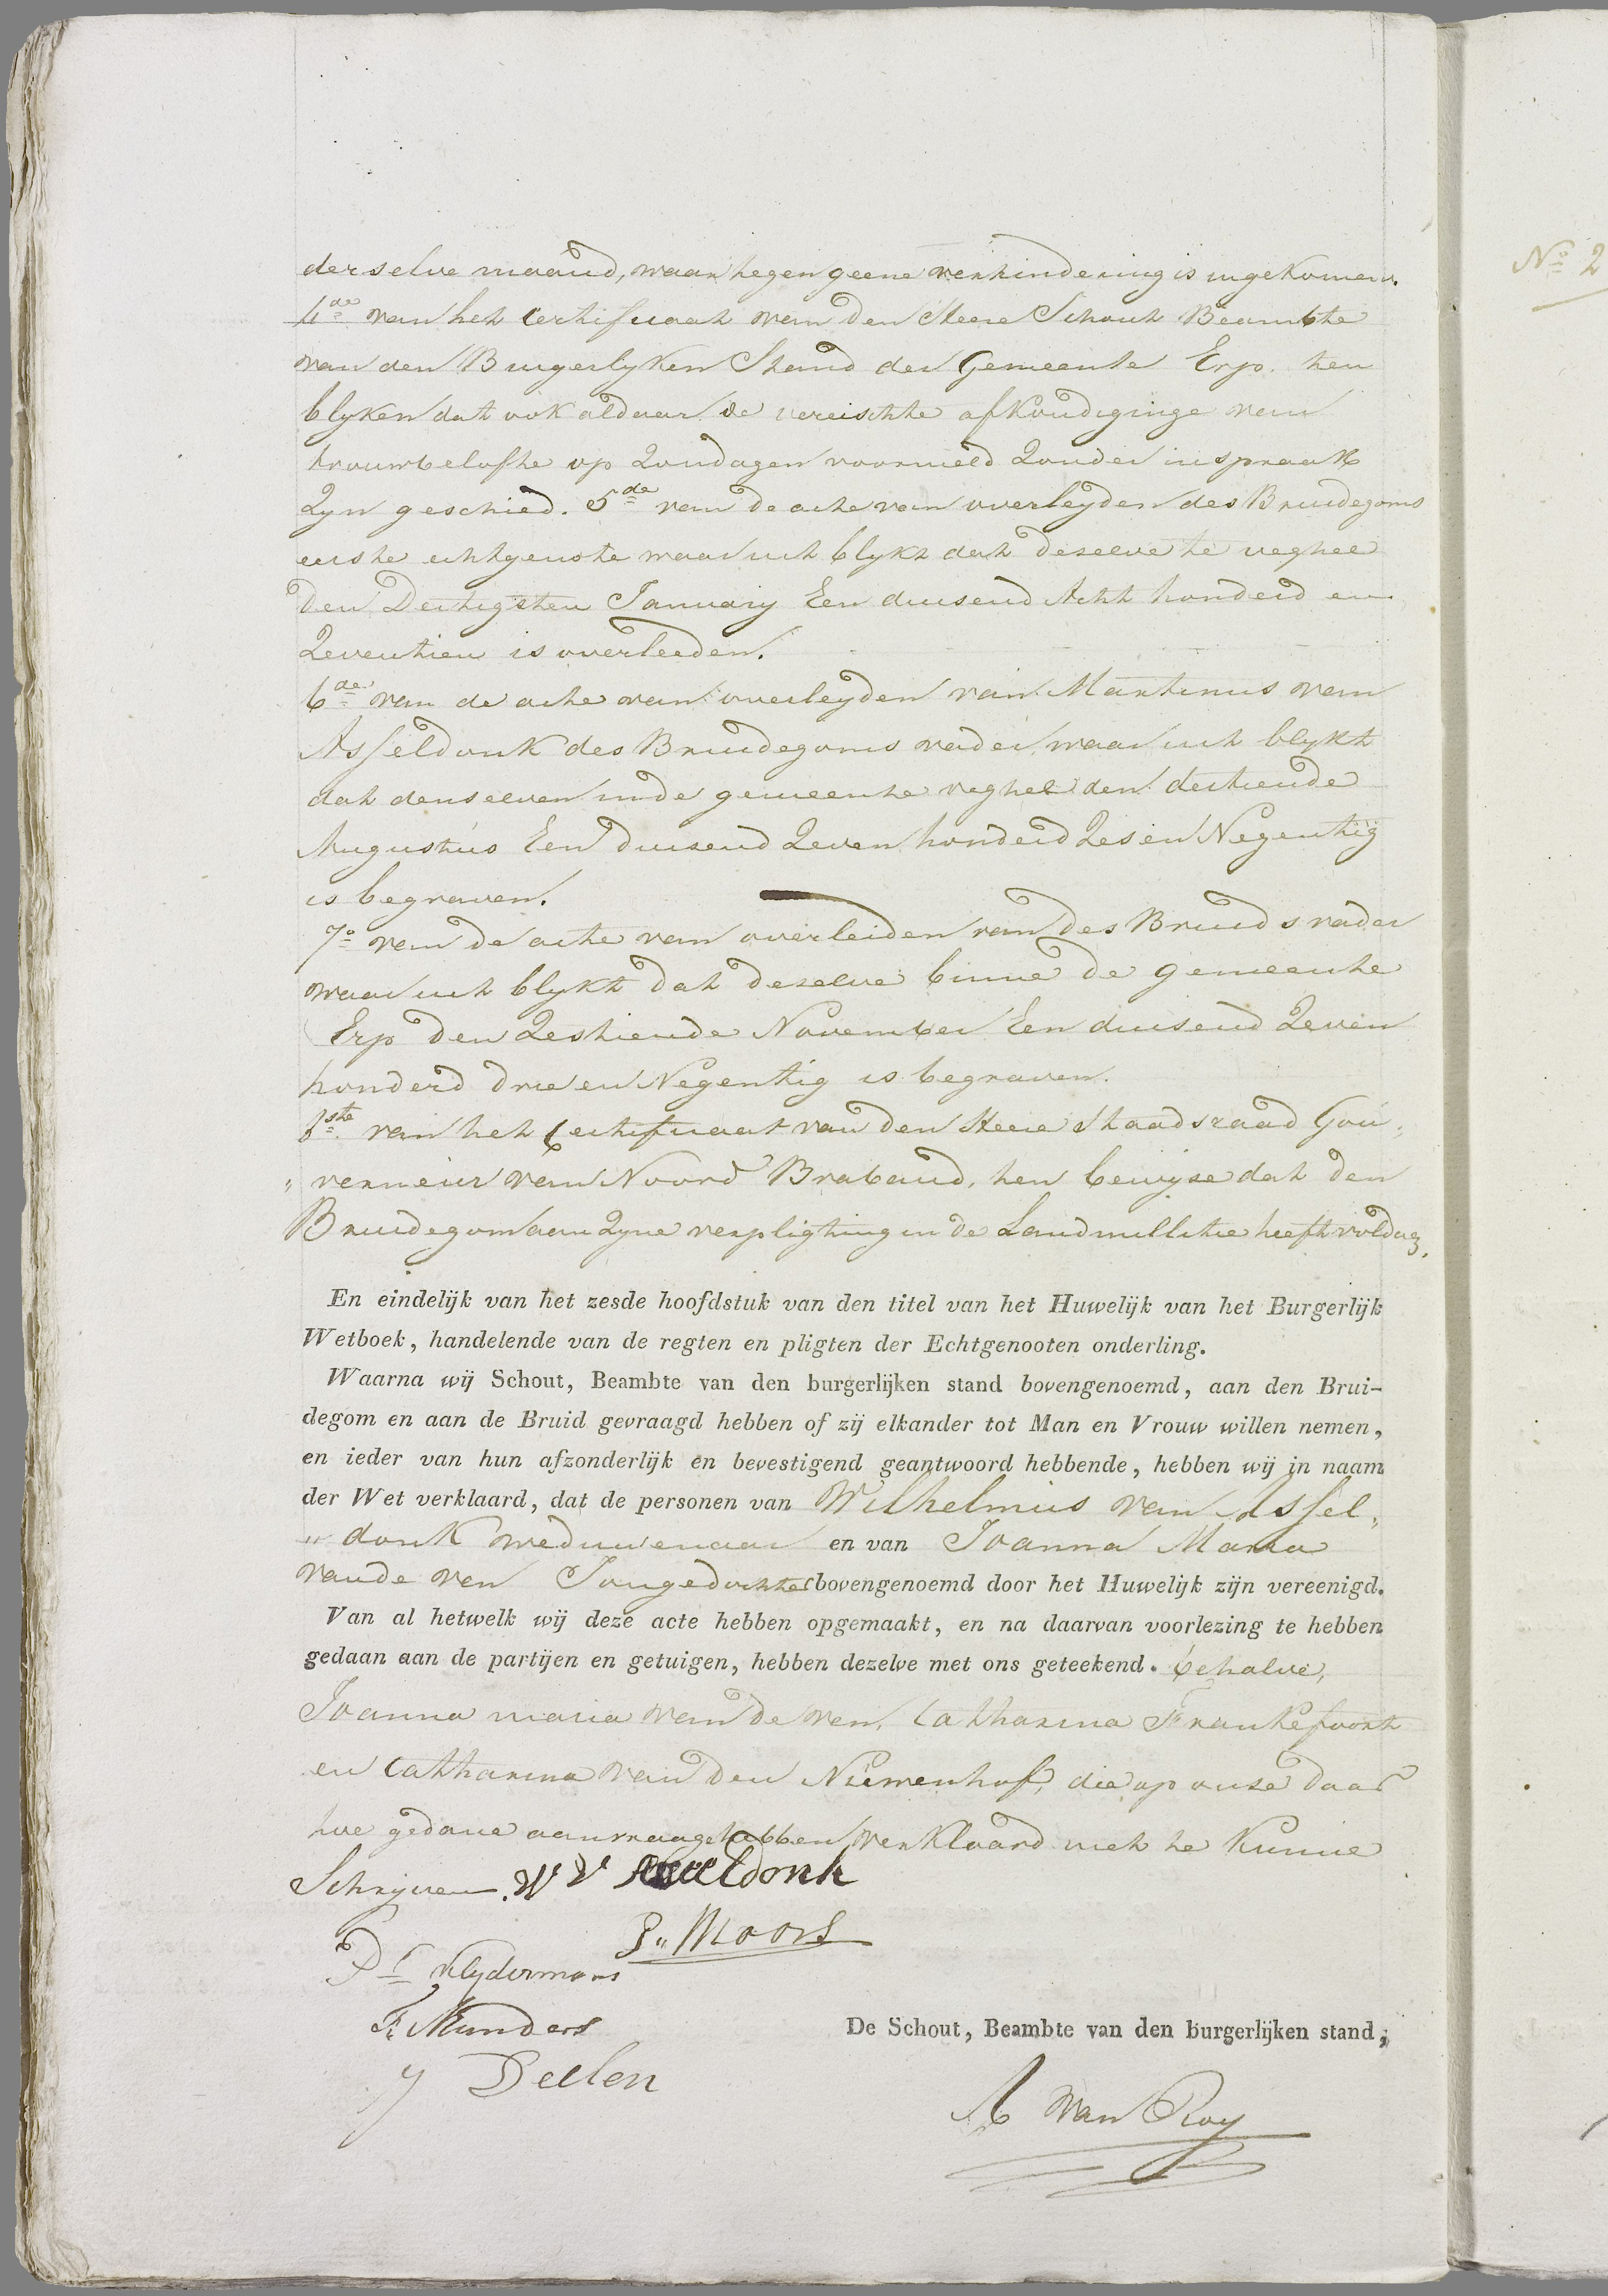 derselve maand, waar tegen geene verhindering is ingekomen.
4de van het Certificaat van den Heere Schout Beambte
van den Burgerlyken Stand der Gemeente Erp. ten
blyken dat ook aldaar de vereischte afkondiginge van
trouwbelofte op Zondagen voormeld Zonder inspraak
Zyn geschied. 5de van de acte van overleyden des Bruidegoms
eerste echtgenote waar uit blykt dat deselve te veghel
den Dertigsten January Een duisend Acht honderd en
Zeventien is overleeden.
6de van de acte van overleyden van Martinus van
Asseldonk des Bruidegoms vader, waar uit blykt
dat denselven in de gemeente veghel den dertiende
Augustus Een duisend Zeven honderd Zes en Negentig
is begraven.
7o van de acte van overleiden van des Bruids vader
waar uit blykt dat deselve binne de gemeente
Erp den Zestiende November Een duisend Zeven
honderd drie en Negentig is begraven.
8ste van het Certificaat van den Heere Staadsraad Gou„
„verneur van Noord Braband, ten bewyse dat den
Bruidegom aan Zyne verpligting in de Landmillitie heeft voldaa
En eindelijk van het zesde hoofdstuk van den titel van het Huwelijk van het Burgerlijk
Wetboek, handelende van de regten en pligten der Echtgenooten onderling.
Waarna wij Schout, Beambte van den burgerlijken stand bovengenoemd, aan den Brui-
degom en aan de Bruid gevraagd hebben of zij elkander tot Man en Vrouw willen nemen,
en ieder van hun afzonderlijk en bevestigend geantwoord hebbende, hebben wij in naam
der Wet verklaard, dat de personen van Wilhelmus van Assel„
„donk weduwenaar en van Joanna Maria
vande ven Jongedochter bovengenoemd door het Huwelijk zijn vereenigd.
Van al hetwelk wij deze acte hebben opgemaakt, en na daarvan voorlezing te hebben
gedaan aan de partijen en getuigen, hebben dezelve met ons geteekend. behalve,
Joanna maria van de ven, Catharina Frankefoort
en Catharina van den Nieuwenhof, die op onse daar
toe gedane aanvraage hebben verklaard niet te kunne
Schryven. W V Asseldonk
P„ Moors
P Kleydermans
F. Munders
J Deelen
De Schout, Beambte van den burgerlijken stand,
A van Roy
No 2